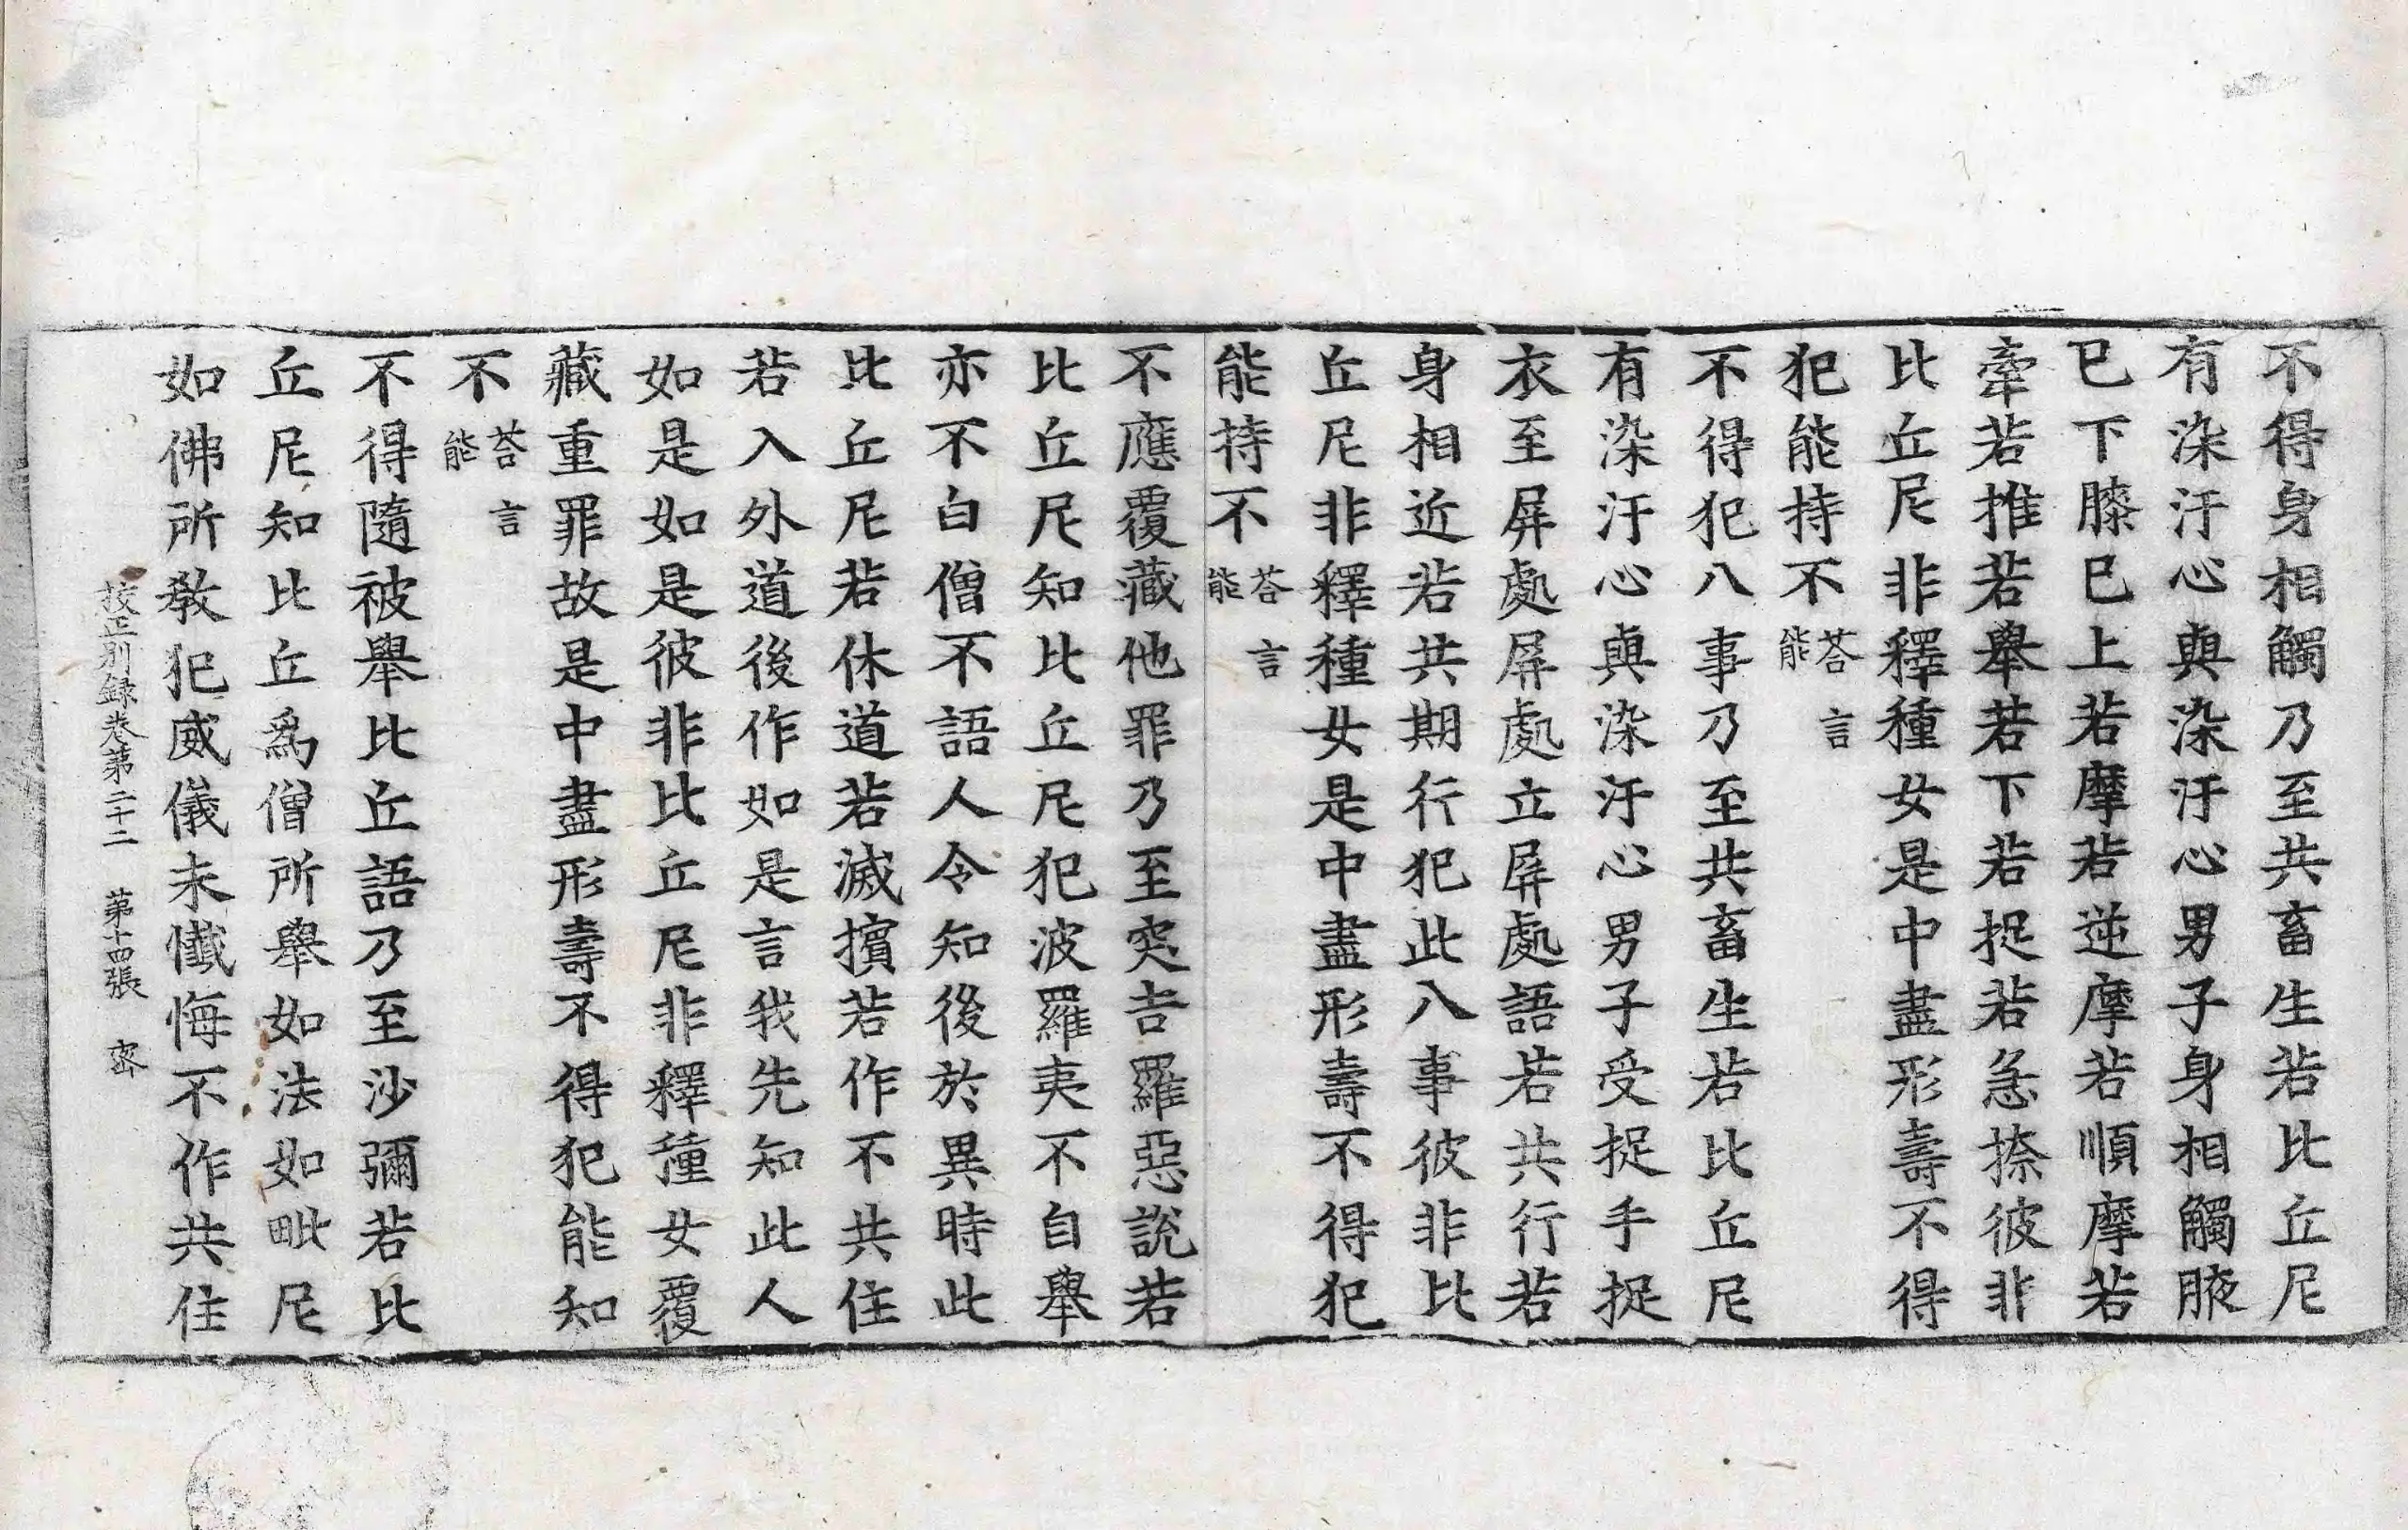 不得身相觸乃至共畜生若比丘尼
有染汙心與染汙心男子身相觸腋
已下膝已上若摩若逆摩若順摩若
牽若推若舉若下若捉若急捺彼非
比丘尼非釋種女是中盡形壽不得
犯能持不荅言能
不得犯八事乃至共畜生若比丘尼
有染汙心與染汙心男子受捉手捉
衣至屏處屏處立屏處語若共行若
身相近若共期行犯此八事彼非比
丘尼非釋種女是中盡形壽不得犯
能持不荅言能
不應覆藏他罪乃至突吉羅惡說若
比丘尼知比丘尼犯波羅夷不自舉
亦不白僧不語人令知後於異時此
比丘尼若休道若滅擯若作不共住
若入外道後作如是言我先知此人
如是如是彼非比丘尼非釋種女覆
藏重罪故是中盡形壽不得犯能知
不荅言能
不得隨被舉比丘語乃至沙彌若比
丘尼知比丘爲僧所舉如法如毗尼
如佛所教犯威儀未懺悔不作共住
挍正別録卷第二十二 第十四張 宻